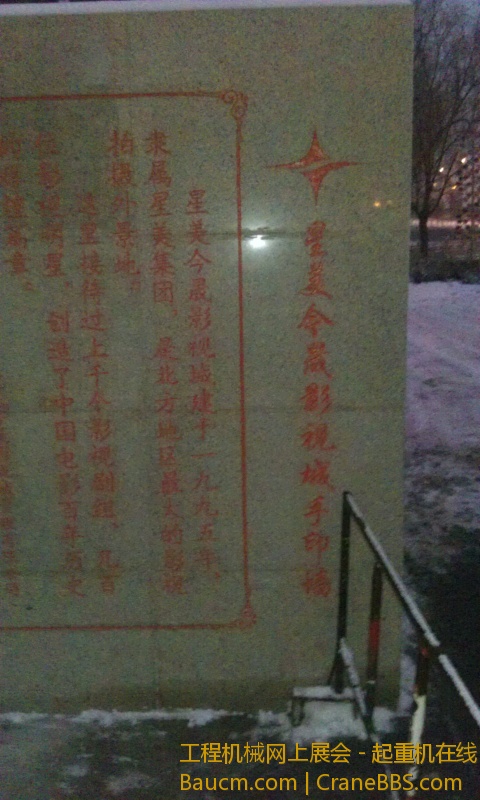 星美今晟影视城手印墙
星美今晟影视城建于一九九五年，
隶属星美集团，是北方地区最大的影视
拍摄外景地。
这里接待过上千个影视剧组、几百
位影视明星，创造了中国电影百年历史
工程机械网上展会 - 起重机在线
Baucm.com | CraneBBS.com